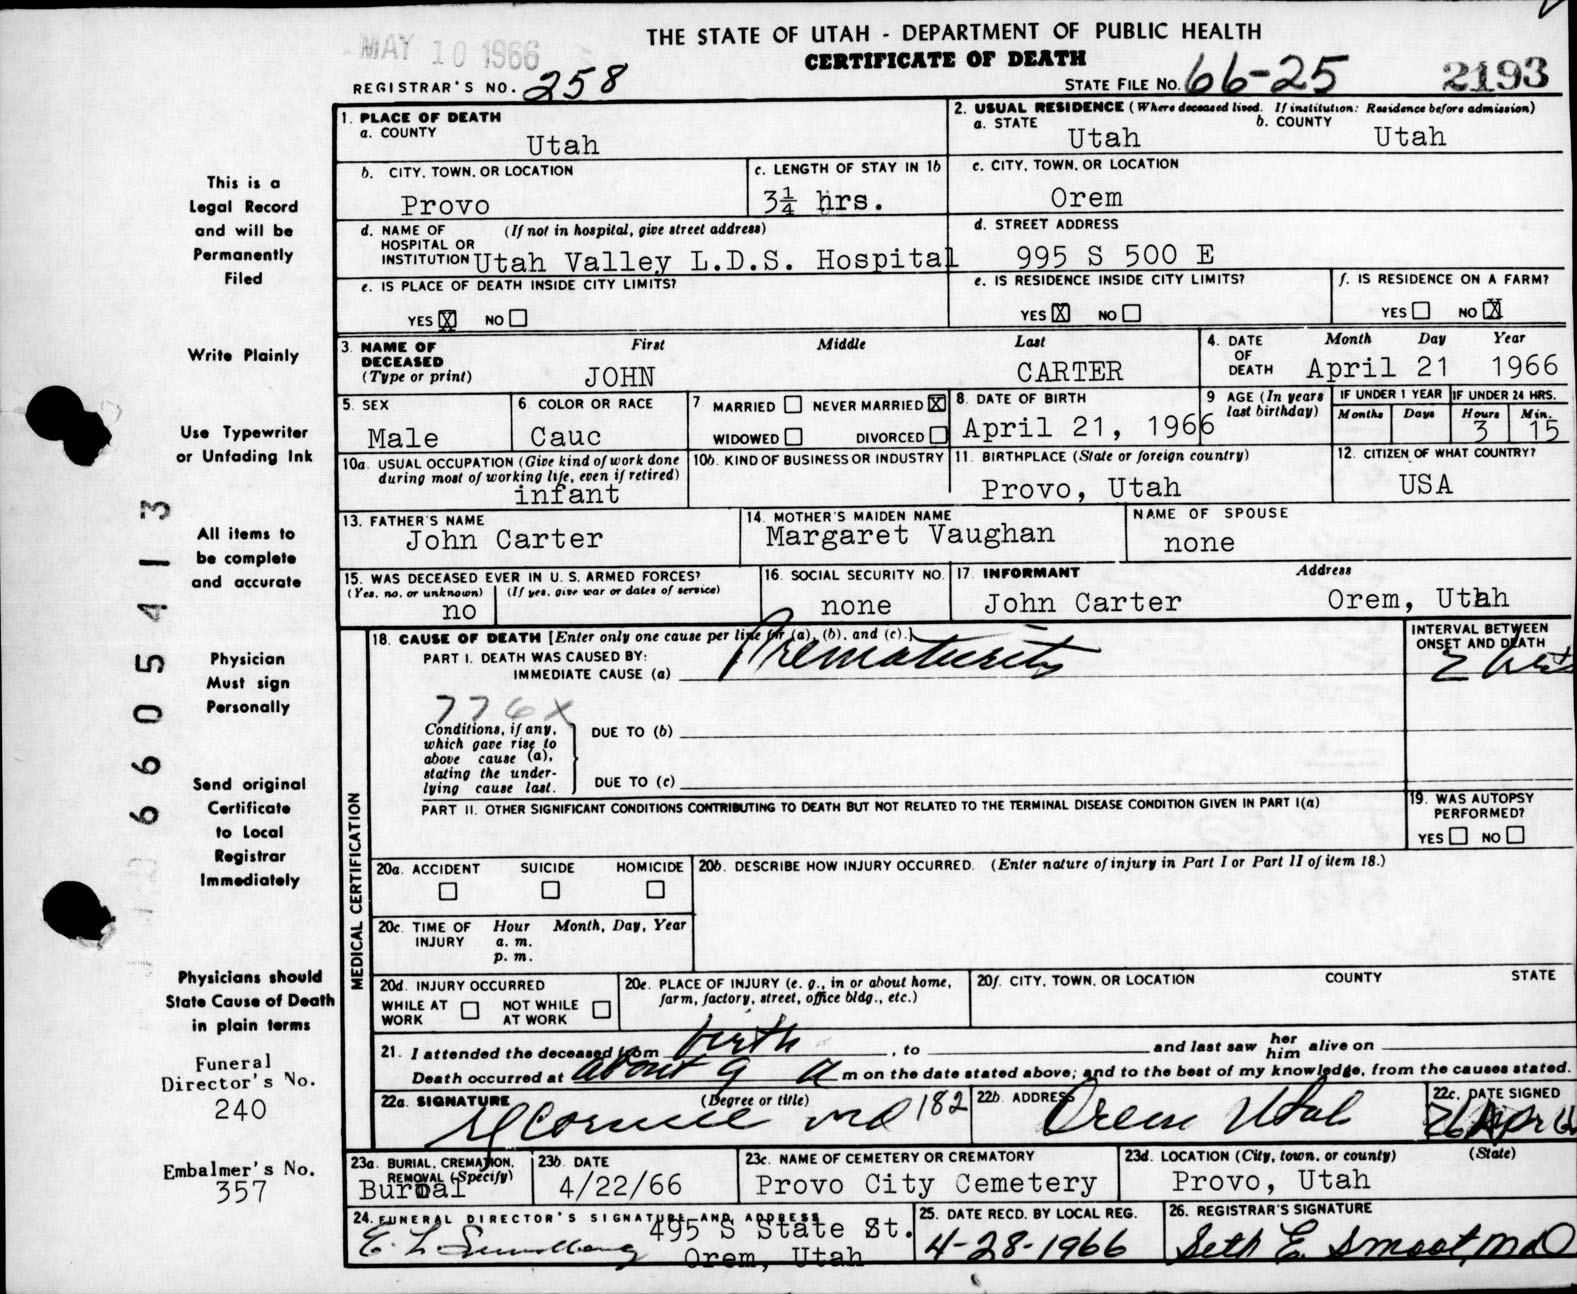 THE STATE OF UTAH - DEPARTMENT OF PUBLIC HEALTH
MAY 10 1966
CERTIFICATE OF DEATH
REGISTRAR'S NO. 258
STATE FILE NO. 66-25 2193
1. PLACE OF DEATH
a. COUNTY
Utah
2. USUAL RESIDENCE (Where deceased lived. If institution: Residence before admission)
a. STATE
Utah
b. COUNTY
Utah
b. CITY, TOWN, OR LOCATION
Provo
c. LENGTH OF STAY IN 1b
3¼ hrs.
c. CITY, TOWN, OR LOCATION
Orem
d. NAME OF HOSPITAL OR INSTITUTION (If not in hospital, give street address)
Utah Valley L.D.S. Hospital
d. STREET ADDRESS
995 S 500 E
e. IS PLACE OF DEATH INSIDE CITY LIMITS?
YES X NO
e. IS RESIDENCE INSIDE CITY LIMITS?
YES X NO
f. IS RESIDENCE ON A FARM?
YES NO X
3. NAME OF DECEASED (Type or print)
First Middle Last
JOHN CARTER
4. DATE OF DEATH
Month Day Year
April 21 1966
5. SEX
Male
6. COLOR OR RACE
Cauc
7 MARRIED NEVER MARRIED X
WIDOWED DIVORCED
8. DATE OF BIRTH
April 21, 1966
9 AGE (In years last birthday)
IF UNDER 1 YEAR
Months Days
IF UNDER 24 HRS.
Hours Min.
3 15
10a. USUAL OCCUPATION (Give kind of work done during most of working life, even if retired)
infant
10b. KIND OF BUSINESS OR INDUSTRY
11. BIRTHPLACE (State or foreign country)
Provo, Utah
12. CITIZEN OF WHAT COUNTRY?
USA
13. FATHER'S NAME
John Carter
14. MOTHER'S MAIDEN NAME
Margaret Vaughan
NAME OF SPOUSE
none
15. WAS DECEASED EVER IN U. S. ARMED FORCES?
(Yes, no, or unknown) (If yes, give war or dates of service)
no
16. SOCIAL SECURITY NO.
none
17. INFORMANT Address
John Carter Orem, Utah
MEDICAL CERTIFICATION
18. CAUSE OF DEATH [Enter only one cause per line for (a), (b), and (c).]
PART I. DEATH WAS CAUSED BY:
IMMEDIATE CAUSE (a) Prematurity
INTERVAL BETWEEN ONSET AND DEATH
776X
Conditions, if any, which gave rise to above cause (a), stating the underlying cause last.
DUE TO (b)
DUE TO (c)
PART II. OTHER SIGNIFICANT CONDITIONS CONTRIBUTING TO DEATH BUT NOT RELATED TO THE TERMINAL DISEASE CONDITION GIVEN IN PART I(a)
19. WAS AUTOPSY PERFORMED?
YES NO
20a. ACCIDENT SUICIDE HOMICIDE
20b. DESCRIBE HOW INJURY OCCURRED. (Enter nature of injury in Part I or Part II of item 18.)
20c. TIME OF INJURY Hour Month, Day, Year
a. m.
p. m.
20d. INJURY OCCURRED
WHILE AT WORK NOT WHILE AT WORK
20e. PLACE OF INJURY (e. g., in or about home, farm, factory, street, office bldg., etc.)
20f. CITY, TOWN, OR LOCATION COUNTY STATE
21. I attended the deceased from birth, to and last saw her him alive on
Death occurred at about 9 a m on the date stated above; and to the best of my knowledge, from the causes stated.
22a. SIGNATURE (Degree or title)
MD 182
22b. ADDRESS
Orem Utah
22c. DATE SIGNED
26 Apr 66
23a. BURIAL, CREMATION, REMOVAL (Specify)
Burial
23b. DATE
4/22/66
23c. NAME OF CEMETERY OR CREMATORY
Provo City Cemetery
23d. LOCATION (City, town, or county) (State)
Provo, Utah
24. FUNERAL DIRECTOR'S SIGNATURE AND ADDRESS
495 S State St.
Orem, Utah
25. DATE RECD. BY LOCAL REG.
4-28-1966
26. REGISTRAR'S SIGNATURE
Seth E. Smoot, MD
This is a
Legal Record
and will be
Permanently
Filed
Write Plainly
Use Typewriter
or Unfading Ink
All items to
be complete
and accurate
Physician
Must sign
Personally
Send original
Certificate
to Local
Registrar
Immediately
Physicians should
State Cause of Death
in plain terms
Funeral
Director's No.
240
Embalmer's No.
357
6605413